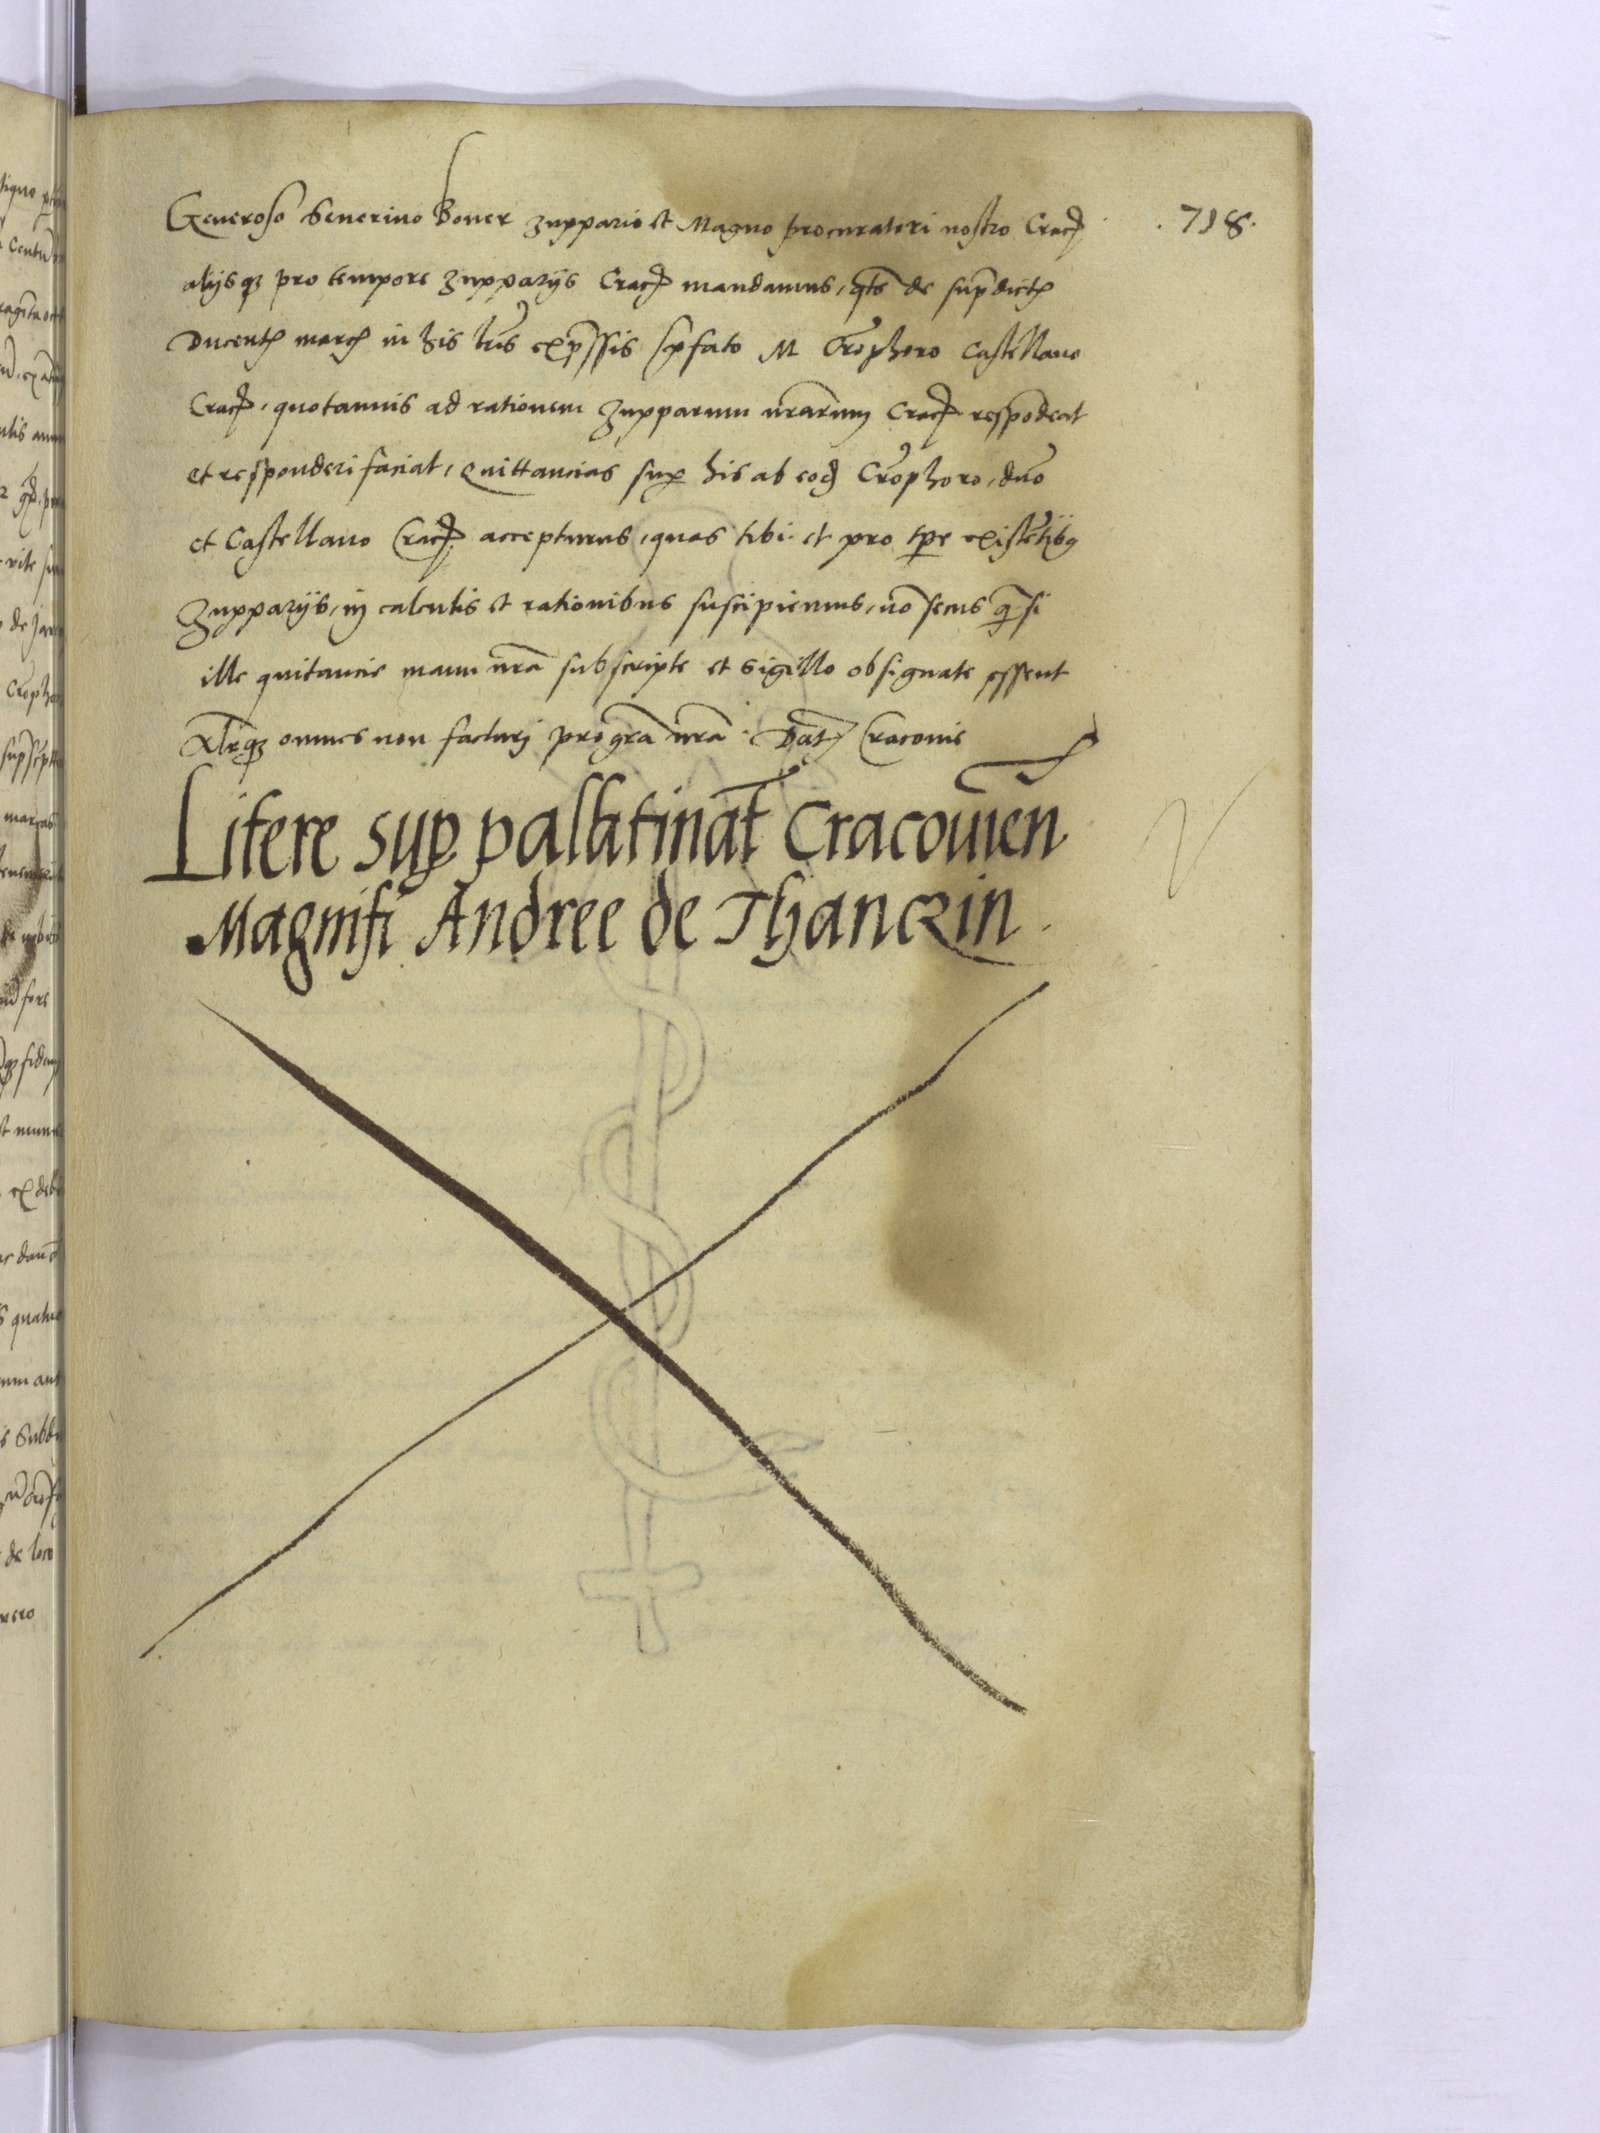 .718.
Generoso Severino Boner zuppario et Magno procuratori nostro Crac
alijsq pro tempore zupparijs Crac mandamus, qts de supdict
Ducent marc in his lris expssis pfato M Crophoro Castellano
Crac, quotannis ad rationem zupparum nrarum Crac respodeat
et responderi faciat, Quittancias sup his ab eod Crophoro, dno
et Castellano Crac accepturus, quas tibi et pro tpe existetibq
zupparijs, in calculis et rationibus suscipiemus, no secus q si
ille quitancie manu nra subscripte et sigillo obsignate essent
Alrq omnes non facturj pro gra nra. Dat Cracovie
Litere sup pallatinat Cracovien
Magnifi Andree de Thanczin.